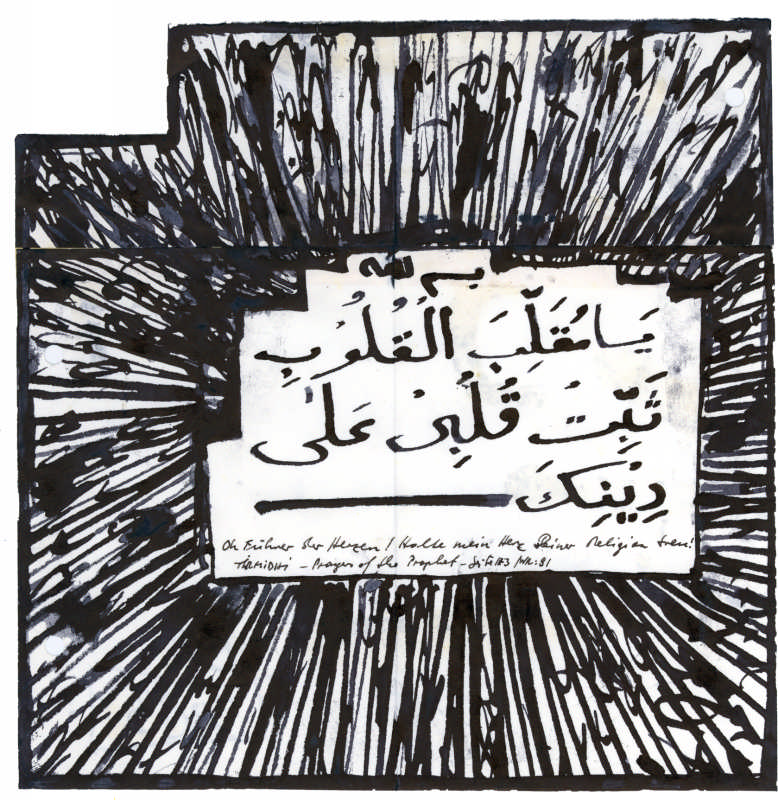 بسم الله
يَا مُقَلِّبَ الْقُلُوبِ
ثَبِّتْ قَلْبِىْ عَلىٰ
دِيْنِكَ
Oh Führer der Herzen! Halte mein Herz Deiner Religion treu!
TIRMIDHI – Prayer of the Prophet – Seite /NR: 81